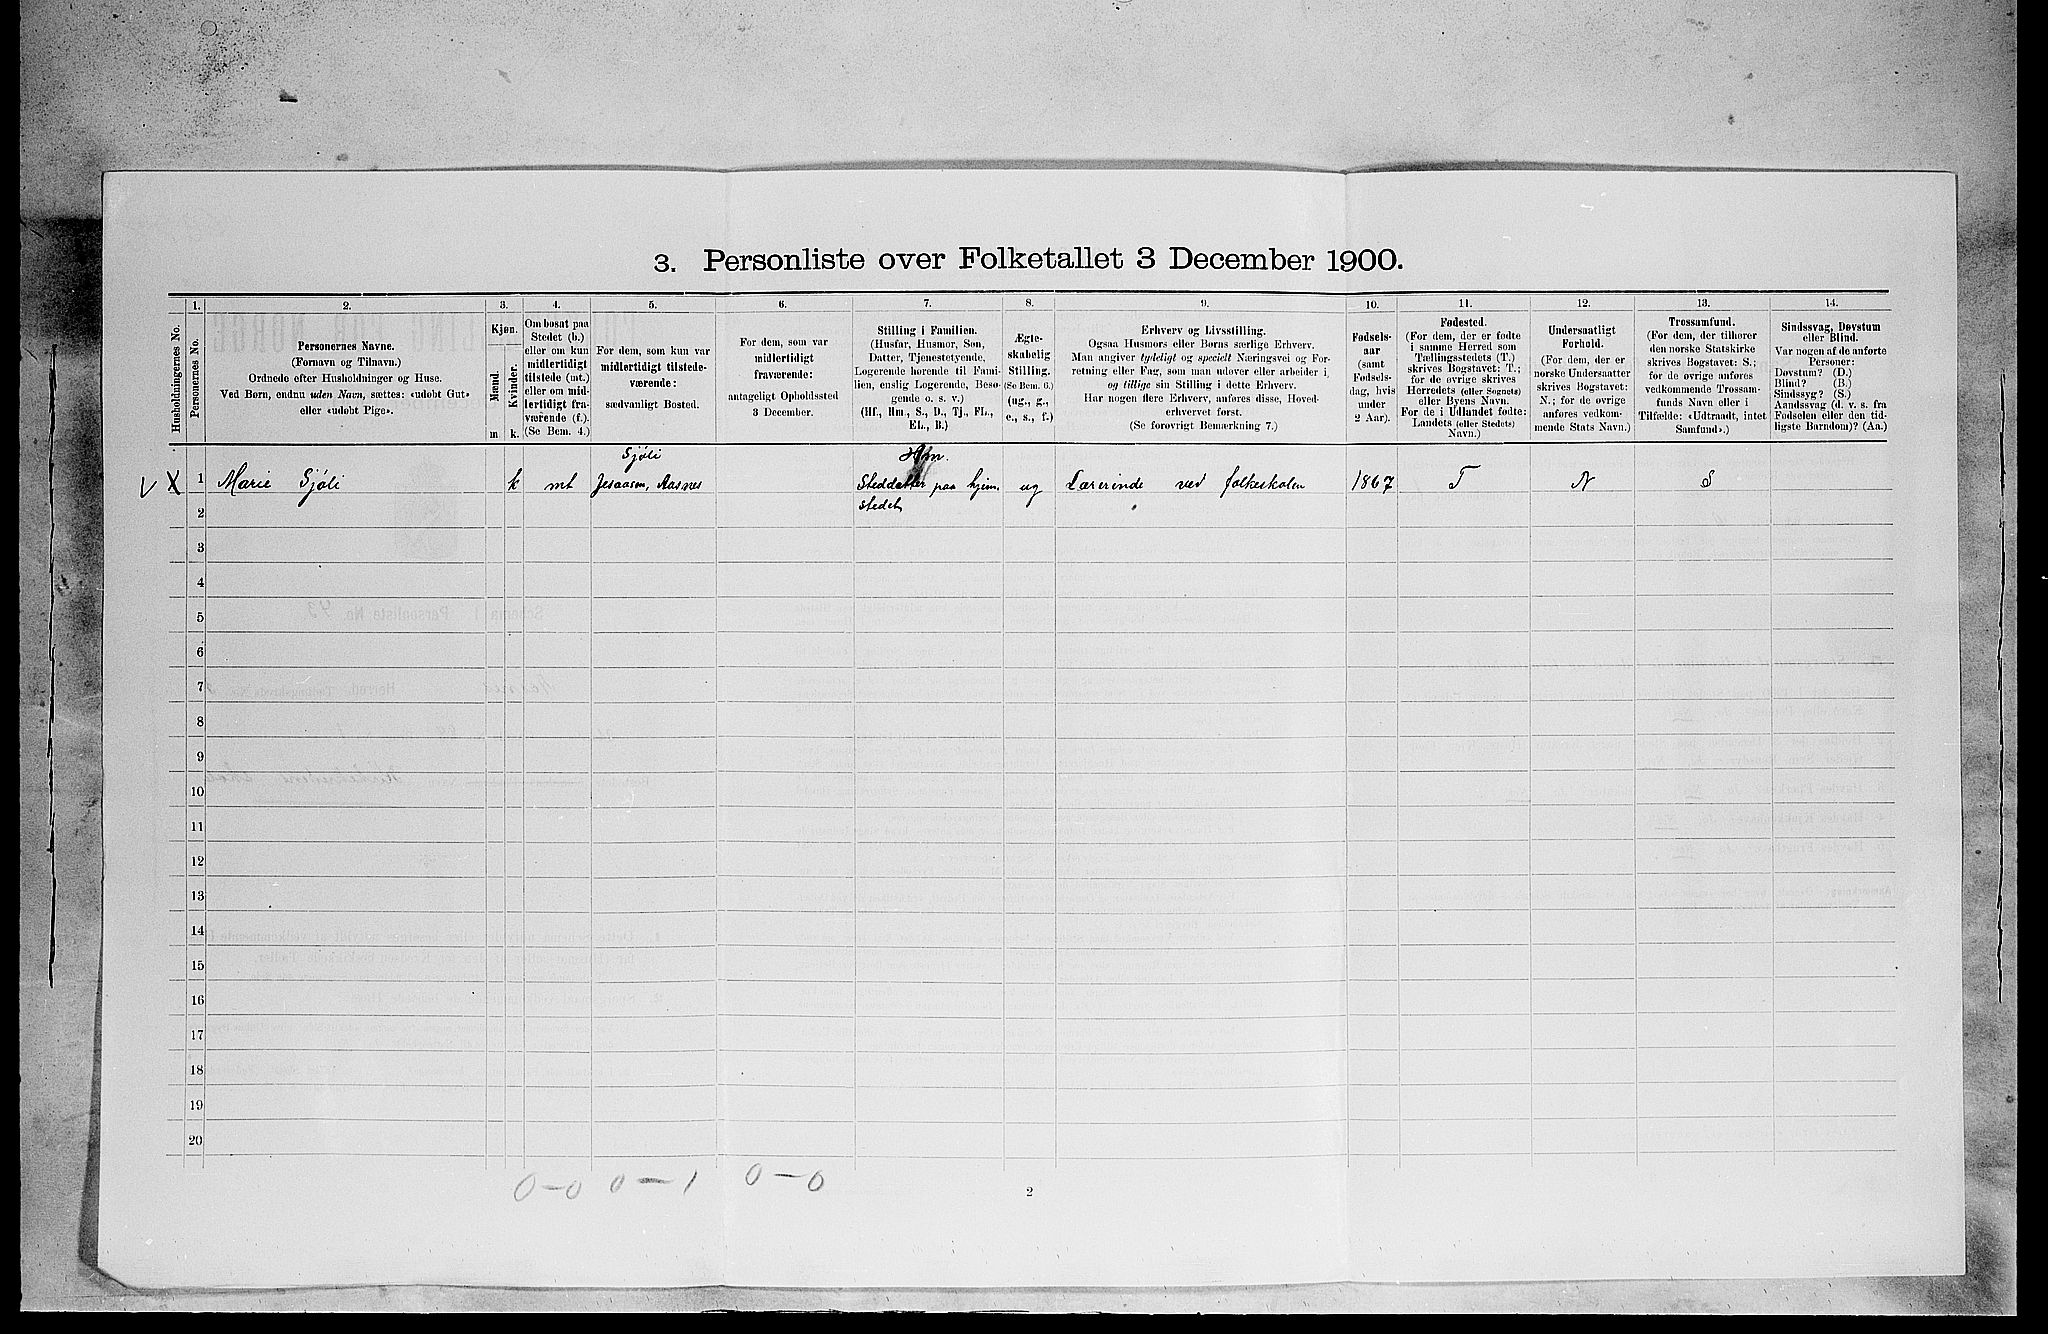 3. Personliste over Folketallet 3 December 1900.
Husholdningernes No.
1.
Personernes No.
2.
Personernes Navne.
(Fornavn og Tilnavn.)
Ordnede efter Husholdninger og Huse.
Ved Børn, endnu uden Navn, sættes: «udøbt Gut»
eller «udøbt Pige».
3.
Kjøn.
Mænd.
Kvinder.
m.
k.
4.
Om bosat paa
Stedet (b.)
eller om kun
midlertidigt
tilstede (mt.)
eller om mid-
lertidigt fra-
værende (f.).
(Se Bem. 4.)
5.
For dem, som kun var
midlertidigt tilstede-
værende:
sædvanligt Bosted.
6.
For dem, som var
midlertidigt
fraværende:
antageligt Opholdssted
3 December.
7.
Stilling i Familien.
(Husfar, Husmor, Søn,
Datter, Tjenestetyende,
Logerende hørende til Fami-
lien, enslig Logerende, Besø-
gende o. s. v.)
(Hf., Hm., S., D., Tj., FL.,
EL., B.)
8.
Ægte-
skabelig
Stilling.
(Se Bem. 6.)
(ug., g.,
e., s., f.)
9.
Erhverv og Livsstilling.
Ogsaa Husmors eller Børns særlige Erhverv.
Man angiver tydeligt og specielt Næringsvei og For-
retning eller Fag, som man udøver eller arbeider i,
og tillige sin Stilling i dette Erhverv.
Har nogen flere Erhverv, anføres disse, Hoved-
erhvervet først.
(Se forøvrigt Bemærkning 7.)
10.
Fødsels-
aar
(samt
Fødsels-
dag, hvis
under
2 Aar).
11.
Fødested.
(For dem, der er fødte
i samme Herred som
Tællingsstedets (T.)
skrives Bogstavet: T.;
for de øvrige skrives
Herredets (eller Sognets)
eller Byens Navn.
For de i Udlandet fødte:
Landets (eller Stedets)
Navn.)
12.
Undersaatligt
Forhold.
(For dem, der er
norske Undersaatter
skrives Bogstavet:
N.; for de øvrige
anføres vedkom-
mende Stats Navn.)
13.
Trossamfund.
(For dem, der tilhører
den norske Statskirke
skrives Bogstavet: S.;
for de øvrige anføres
vedkommende Trossam-
funds Navn eller i
Tilfælde: «Udtraadt, intet
Samfund».)
14.
Sindssvag, Døvstum
eller Blind.
Var nogen af de anførte
Personer:
Døvstum? (D.)
Blind? (B.)
Sindssyg? (S.)
Aandssvag (d. v. s. fra
Fødselen eller den tid-
ligste Barndom)? (Aa.)
V X 1 Marie Sjøli k mt Sjøli
Jesaasen, Aasnes Hm.
Steddatter paa hjem-
stedet ug Lærerinde ved folkeskolen 1867 T N S
2
3
4
5
6
7
8
9
10
11
12
13
14
15
16
17
18
19
20
0-0 0-1 0-0
2